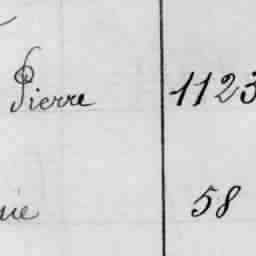 Pierre 1123
58